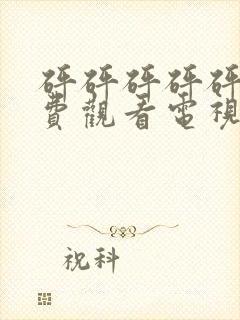 砰砰砰砰砰
費觀看電視
祝科